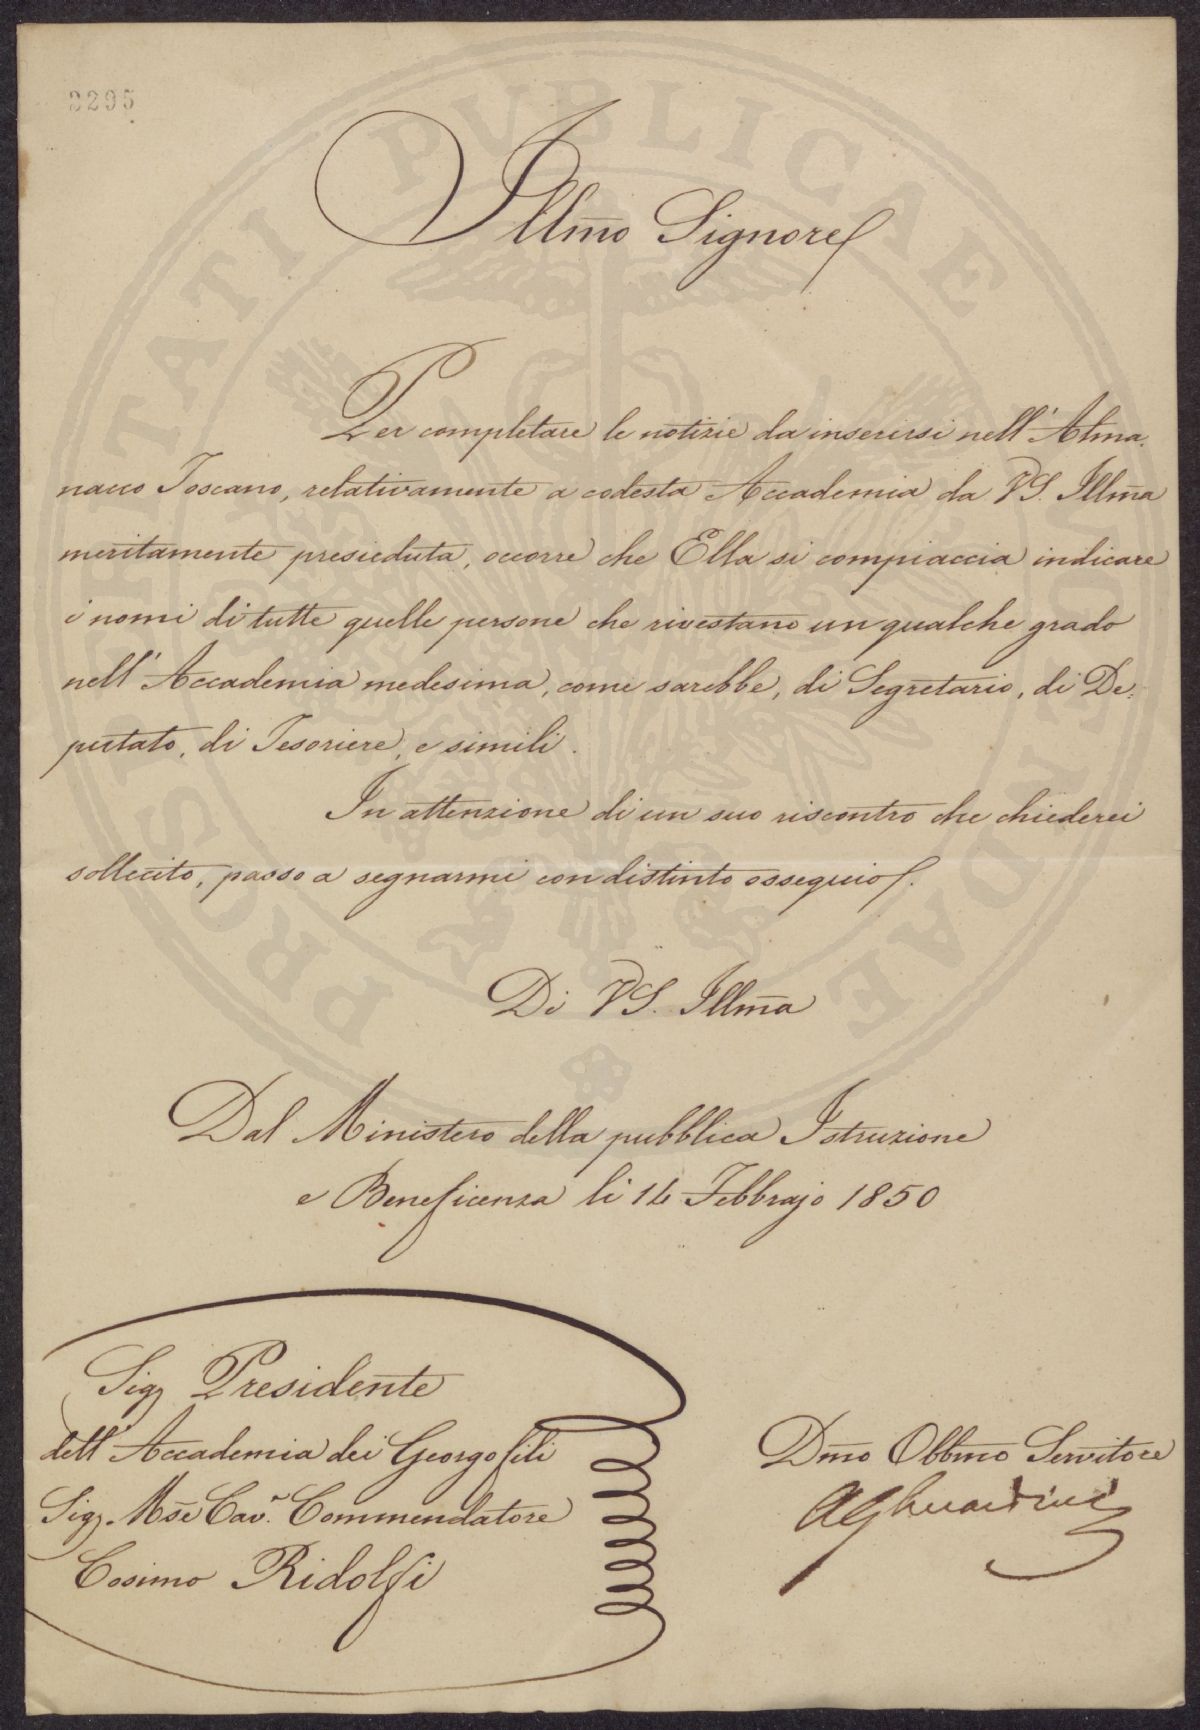 3295
Illmo Signore
Per completare le notizie da inserirsi nell'Alma-
nacco Toscano, relativamente a codesta Accademia da VS. Illma
meritamente presieduta, occorre che Ella si compiaccia indicare
i nomi di tutte quelle persone che rivestano un qualche grado
nell'Accademia medesima, come sarebbe, di Segretario, di De-
putato, di Tesoriere, e simili.
In attenzione di un suo riscontro che chiederei
sollecito, passo a segnarmi con distinto ossequio.
Di VS. Illma
Dal Ministero della pubblica Istruzione
e Beneficenza li 14 Febbrajo 1850
Sig. Presidente
dell'Accademia dei Georgofili
Sig. Mse Cav. Commendatore
Cosimo Ridolfi
Dmo Obbmo Servitore
PROSPERITATI PUBLICAE AUGENDAE